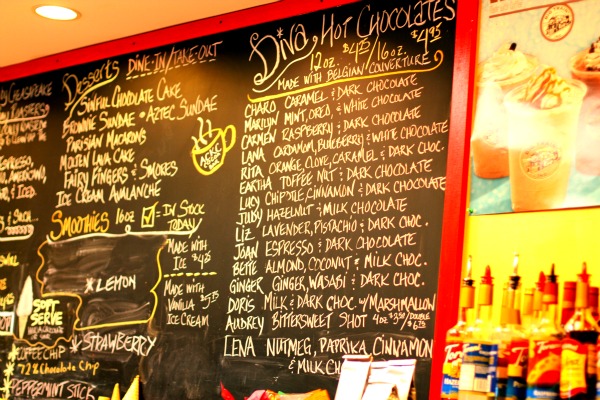 By Chesapeake
Roasters
Espresso,
Americano,
& Iced
Desserts Dine-In/Take-Out
Sinful Chocolate Cake
Brownie Sundae • Aztec Sundae
Parisian Macarons
Molten Lava Cake
Fairy Fingers & S'mores
Ice Cream Avalanche
Smoothies 16oz ☑ = In Stock
Today
Made with
Ice $4.25
* Lemon
Made with
Vanilla $5.75
Ice Cream
Soft
Serve
* Strawberry
* Coffee Chip
* 72% Chocolate Chip
* Peppermint Stick
Diva Hot Chocolates
12 oz. $4.25/16 oz. $4.95
Made with Belgian Couverture
Charo Caramel & Dark Chocolate
Marilyn Mint, Oreo, & White Chocolate
Carmen Raspberry & Dark Chocolate
Lana Cardamom, & White Chocolate
Rita Orange, Clove, Caramel & Dark Choc.
Eartha Toffee Nut & Dark Chocolate
Lucy Chipotle, Cinnamon & Dark Chocolate
Judy Hazelnut & Milk Chocolate
Liz Lavender, Pistachio & Dark Choc.
Joan Espresso & Dark Chocolate
Bette Almond, Coconut & Milk Choc.
Ginger Ginger, Wasabi & Dark Choc.
Doris Milk & Dark Choc. w/Marshmallow
Audrey Bittersweet Shot 4oz $3.50/Double $6.25
Lena Nutmeg, Paprika Cinnamon
& Milk